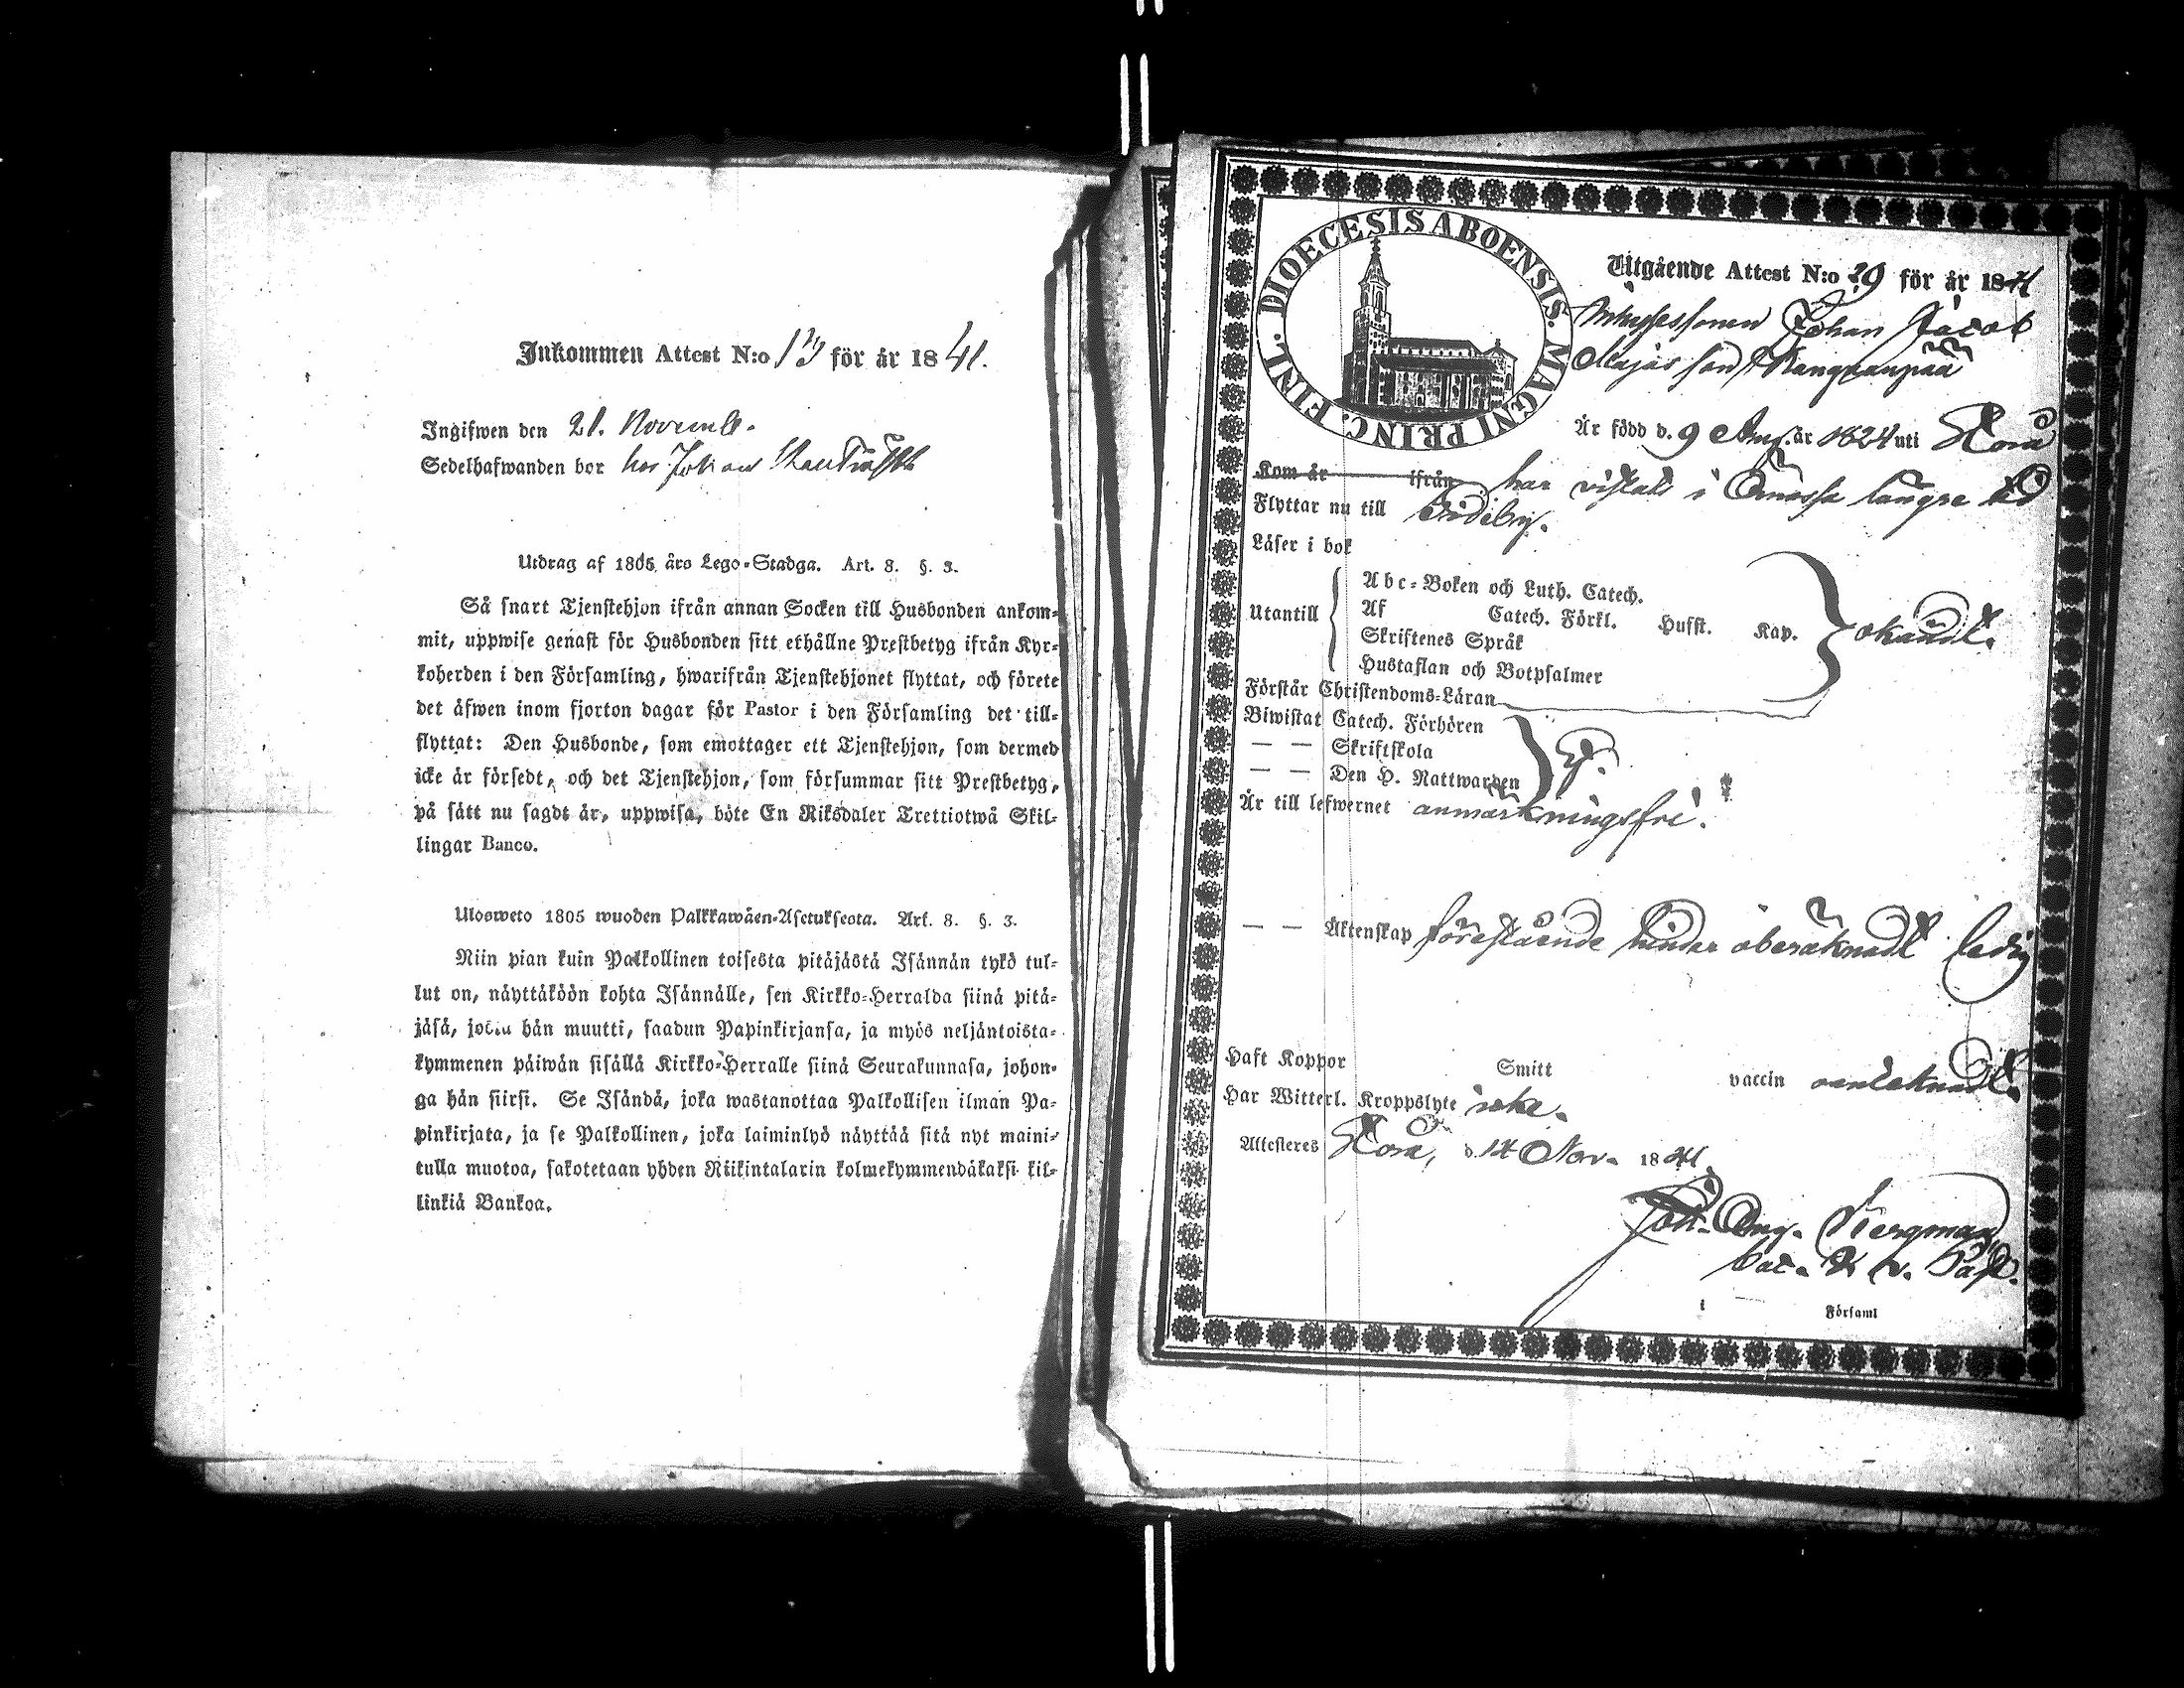 Inkommen Attest N:o 13 för år 1841.
Ingifwen den 21. Novemb.
Sedelhafwanden bor hos Johan
Utdrag af 1805 års Lego-Stadga. Art. 8. §. 3.
Så snart Tjenstehjon ifrån annan Socken till Husbonden ankom-
mit, uppwise genast för Husbonden sitt erhållne Prestbetyg ifrån Kyr-
koherden i den Församling, hwarifrån Tjenstehjonet flyttat, och förete
det äfwen inom fjorton dagar för Pastor i den Församling det till-
flyttat: Den Husbonde, som emottager ett Tjenstehjon, som dermed
icke är försedt, och det Tjenstehjon, som försummar sitt Prestbetyg,
på sätt nu sagdt är, uppwisa, böte En Riksdaler Trettiotwå Skil-
lingar Banco.
Ulosweto 1805 wuoden Palkkawäen-Asetuksesta. Art. 8. §. 3.
Niin pian kuin Palkollinen toisesta pitäjästä Isännän tykö tul-
lut on, näyttäköön kohta Isännälle, sen Kirkko-Herralda siinä pitä-
jäsä, josta hän muutti, saadun Papinkirjansa, ja myös neljäntoista-
kymmenen päiwän sisällä Kirkko-Herralle siinä Seurakunnasa, johon-
ga hän siirsi. Se Isändä, joka wastanottaa Palkollisen ilman Pa-
pinkirjata, ja se Palkollinen, joka laiminlyö näyttää sitä nyt maini-
tulla muotoa, sakotetaan yhden Riikintalarin kolmekymmendäkaksi kil-
linkiä Bankoa.
DIOECESIS ABOENSIS. MAGNI PRINC. FINL.
Utgående Attest N:o 29 för år 1841
Inhysessonen Johan Jacob
Majasson Kangvanpää
Är född d. 9 Aug. år 1824 uti Storå
Kom år ifrån har vistats i Ömossa längre tid
Flyttar nu till Sideby.
Läser i bok
Utantill
Abc-Boken och Luth. Catech.
Af Catech. Förkl. Hufst. Kap.
Skriftenes Språk
Hustaflan och Botpsalmer
okändt.
Förstår Christendoms-Läran
Biwistat Catech. Förhören
— — Skriftskola
— — Den H. Nattwarden
Är till lefwernet anmärkningsfri.
— — Äktenskap förestående hinder oberäknadt ledig
Haft Koppor Smitt vaccin oantecknadt.
Har Witterl. Kroppslyte icke.
Attesteres Storå, d. 14 Nov. 1841
Joh. Aug. Bergman
i Församl